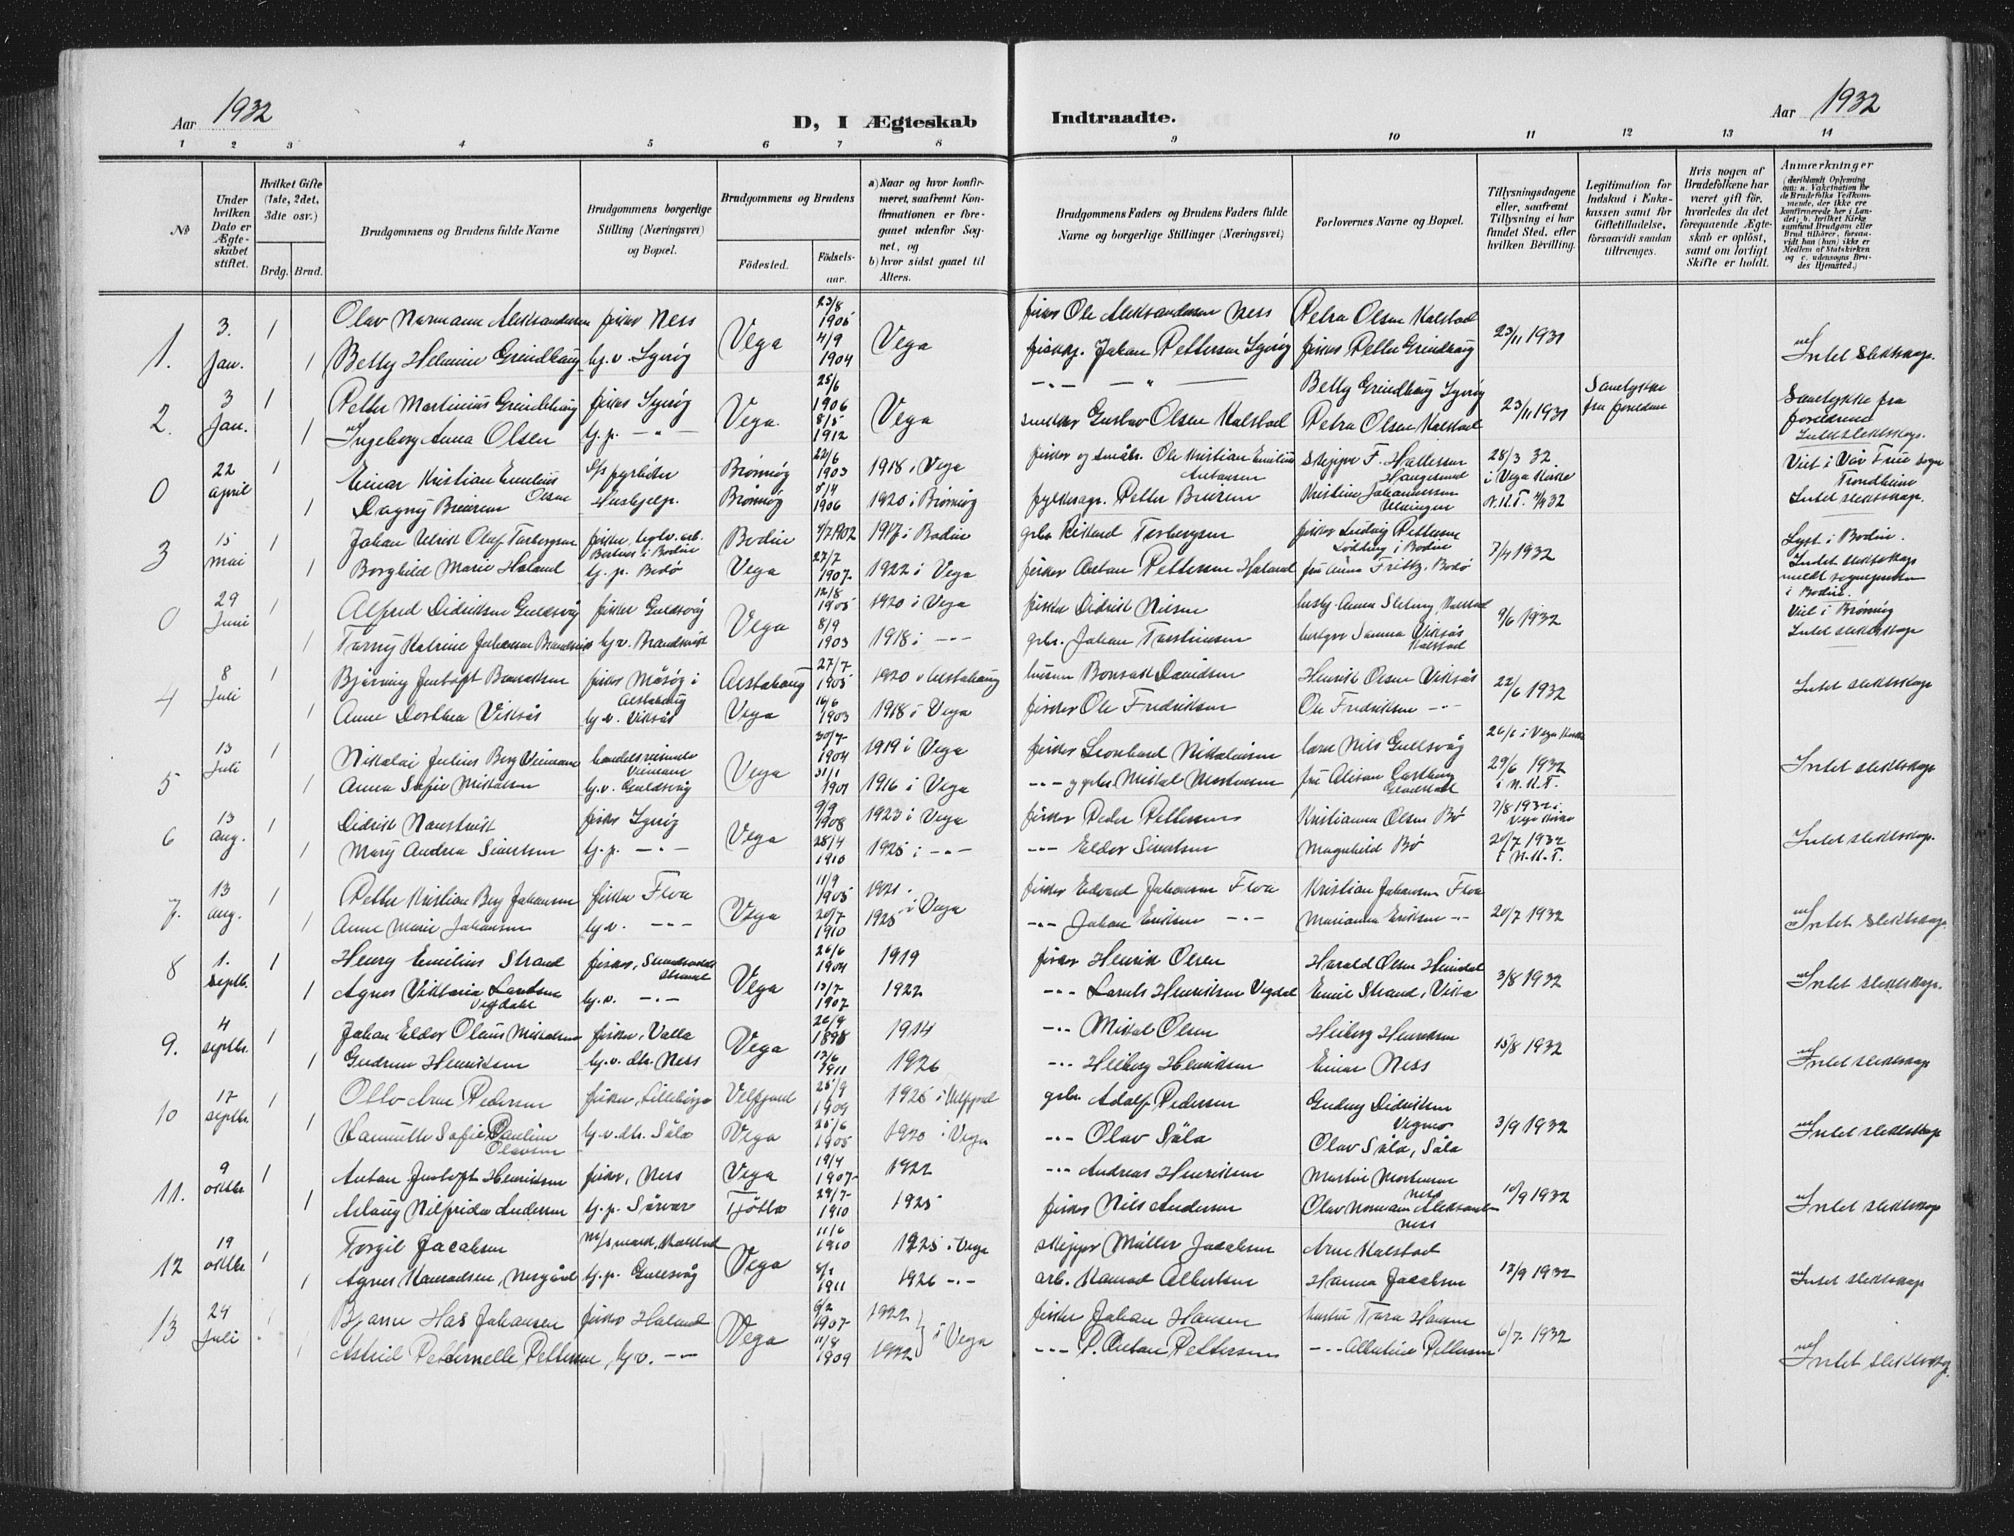 Aar 1932
D, I Ægteskab Indtraadte.
Aar 1932
1 2 3 4 5 6 7 8 9 10 11 12 13 14
No
Under hvilken Dato er Ægteskabet stiftet.
Hvilket Gifte (1ste, 2det, 3die osv.)
Brdg. Brud.
Brudgommens og Brudens fulde Navne
Brudgommens borgerlige Stilling (Næringsvei) og Bopæl.
Brudgommens og Brudens
Fødested.
Fødselsaar.
a) Naar og hvor konfirmeret, saafremt Konfirmationen er foregaaet udenfor Sognet, og
b) hvor sidst gaaet til Alters.
Brudgommens Faders og Brudens Faders fulde Navne og borgerlige Stillinger (Næringsvei)
Forlovernes Navne og Bopæl.
Tillysningsdagene eller, saafremt Tillysning ei har fundet Sted, efter hvilken Bevilling.
Legitimation for Indskud i Enkekassen samt for Giftetilladelse, forsaavidt saadan tiltrænges.
Hvis nogen af Brudefolkene har været gift før, hvorledes da det foregaaende Ægteskab er opløst, samt om lovligt Skifte er holdt.
Anmærkninger (deriblandt Oplysning om: a. Vakcination for de Brudefolks Vedkommende, der ikke ere konfirmerede her i Landet; b. hvilket Kirkesamfund Brudgom eller Brud tilhører, forsaavidt han (hun) ikke er Medlem af Statskirken og c. udensogns Brudes Hjemsted.)
1. 3. Jan. 1 Olav Normann Aleksandersen fisker Ness Vega 23/8 1905 Vega fisker Ole Aleksandersen Ness Petra Olsen Kalstad 23/11 1931
1 Betty Helmine Grindhaug hj.v. Igerøy 4/9 1904 Johan Pettersen Igerøy fisker Petter Grindhaug Intet slektskap.
2. 3 Jan. 1 Petter Martinius Grindhaug fisker Igerøy Vega 25/6 1906 Vega -"- -"- Betty Grindhaug Igerøy 23/11 1931 Samtykke fra foreldrene Samtykke fra foreldrene
1 Ingeborg Anna Olsen hj.p. -"- 8/5 1912 snekker Gustav Olsen Kalstad Petra Olsen Kalstad Intet slektskap.
0 22 april 1 Einar Kristian Emilius Olsen fyrbøter Brønnøy 22/6 1903 1918 i Vega fisker og småbr. Ole Kristian Emilius Antonsen skipper F. Haugesund 28/3 32 i Vega kirke Viet i Vår Frue sogn Trondheim
1 Dagny Hushjelp. Brønnøy 1906 1920 i Brønnøy Petter Kristine Johannessen N.K.T. 1932 Intet slektskap.
3 15 mai 1 Johan Ulrik Oluf Torbergsen fisker Bodin 4/7 1902 1917 i Bodin gbr. Rikard Torbergsen fisker Ludvig Pettersen Løding i Bodin 7/4 1932 Lyst i Bodin.
1 Borghild Marie Haland hj.p. Bodø Vega 27/7 1907 1922 i Vega fisker Anton Pettersen Haland fru Anna Fritz. Bodø Intet slektskap meldt sognepresten i Bodin.
0 29 Juni 1 Alfred Didriksen Guldsvåg fisker Guldsvåg Vega 12/8 1905 1920 i Vega fisker Didrik Nilsen Anna Kalstad 9/6 1932 Viet i Brønnøy
1 Torny Katrine Johansen hj.v. 8/9 1903 1918 i -"- gbr. Johan Torstensen Sanna Viksås Kalstad Intet slektskap
4 8 Juli 1 Bjarning Jentoft Bonsaksen fisker Måsøy i Alstahaug Alstahaug 27/7 1905 1920 i Alstahaug Bonsak Davidsen Henrik Olsen Viksås 22/6 1932
1 Anne Dorthea Viksås hj.v. Viksås Vega 16/6 1903 1918 i Vega fisker Ole Fredriksen Ole Fredriksen -"- Intet slektskap
5 13 Juli 1 Nikolai Julius Berg Veimann handelsreisende Vega 30/7 1904 1919 i Vega fisker Leonhard Nikolaisen Nils Gullsvåg 26/6 i Vega kirke
1 Anna Sofie Mikalsen hj.v. Guldsvåg 31/1 1901 1916 i Vega -"- og gbr. Mikal Mortensen fru Alison 29/6 1932 i N.K.T. Intet slektskap
6 13 Aug. 1 Didrik fisker Igerøy Vega 9/9 1908 1923 i Vega fisker Peder Pettersen Kristianna Olsen Bø 7/8 1932 i Vega kirke
1 Mary Andrea Sivertsen hj.p. -"- 28/4 1910 1925 i -"- -"- Eldor Sivertsen Magnhild Bø 20/7 1932 i N.K.T. Intet slektskap.
7. 13 Aug. 1 Petter Kristian Berg Johansen fisker Floa Vega 11/9 1905 1921 i Vega fisker Edvard Johansen Floa Kristian Johansen Floa 20/7 1932
1 Anne Marie Johansen hj.v. -"- 20/7 1910 1925 -"- Johan Eriksen -"- Marianna Eriksen -"- Intet slektskap
8 1. septb. 1 Henry Emilius Strand fisker, Strand Vega 26/6 1904 1919 fisker Henrik Olsen Harald Olsen Heimdal 3/8 1932
1 Agnes Viktoria Larsen Vegdal hj.v. -"- 13/7 1907 1922 -"- Henriksen Vegdal Emil Strand, Vika Intet slektskap.
9. 4 septbr. 1 Johan Eldor Olaus Mikalsen fisker, Valla Vega 26/9 1898 1914 -"- Mikal Olsen Heiberg Henriksen 15/8 1932
1 Gudrun Henriksen hj.v. dtr. Ness 13/6 1911 1926 -"- Heiberg Henriksen Einar Ness Intet slektskap
10 17 septbr. 1 Otto Arne Pedersen fisker, Lilleborge Velfjord 25/9 1909 1925 i Velfjord gbr. Adolf Pedersen Gudny Didriksen Vegmo 3/9 1932
1 Sofie Pauline Olavsen hj.v. dtr. Såla Vega 25/6 1905 1920 i Vega -"- Olav Såla Olav Såla, Såla Intet slektskap
11. 9 oktbr. 1 Anton Jentoft Henriksen fisker, Ness Vega 19/4 1907 1922 -"- Andreas Henriksen Martin Mortensen Ness 10/9 1932
1 Aslaug Nilfrida Andersen hj.p. Sørvær Tjøtta 29/7 1910 1925 fisker Nils Andersen Olav Normann Aleksandersen Ness Intet slektskap
12 19 oktbr. 1 Torgil Jacobsen Kalstad Vega 11/6 1910 1925 i Vega skipper Müller Jacobsen Arne Kalstad 13/9 1932
1 Agnes Konradsen, Nesgård hj.p. Gullsvåg 1911 1926 -"- arb. Konrad Albertsen Hanna Jacobsen Intet slektskap
13 24 Juli 1 Bjarne Has Johansen fisker Haland Vega 6/2 1907 1922 i Vega fisker Johan Hansen hustru Tora Hansen 6/7 1932
1 Astrid Petternelle Pettersen, hj.v. -"- 11/8 1909 1922 -"- P. Anton Pettersen -"- Albertine Pettersen Intet slektskap.